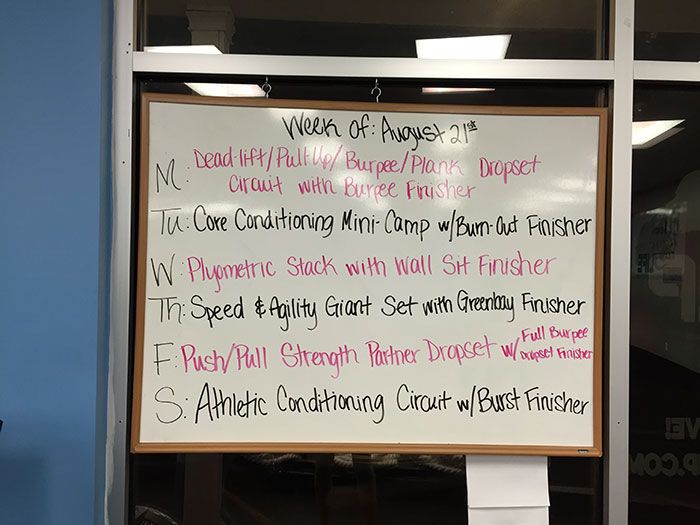 Week of: August 21st
M: Dead-lift/Pull Up/Burpee/Plank Dropset
Circuit with Burpee Finisher
Tu: Core Conditioning Mini-Camp w/Burn-Out Finisher
W: Plyometric Stack with Wall Sit Finisher
Th: Speed & Agility Giant Set with Greenbay Finisher
F: Push/Pull Strength Partner Dropset w/ Full Burpee
Dropset Finisher
S: Athletic Conditioning Circuit w/Burst Finisher